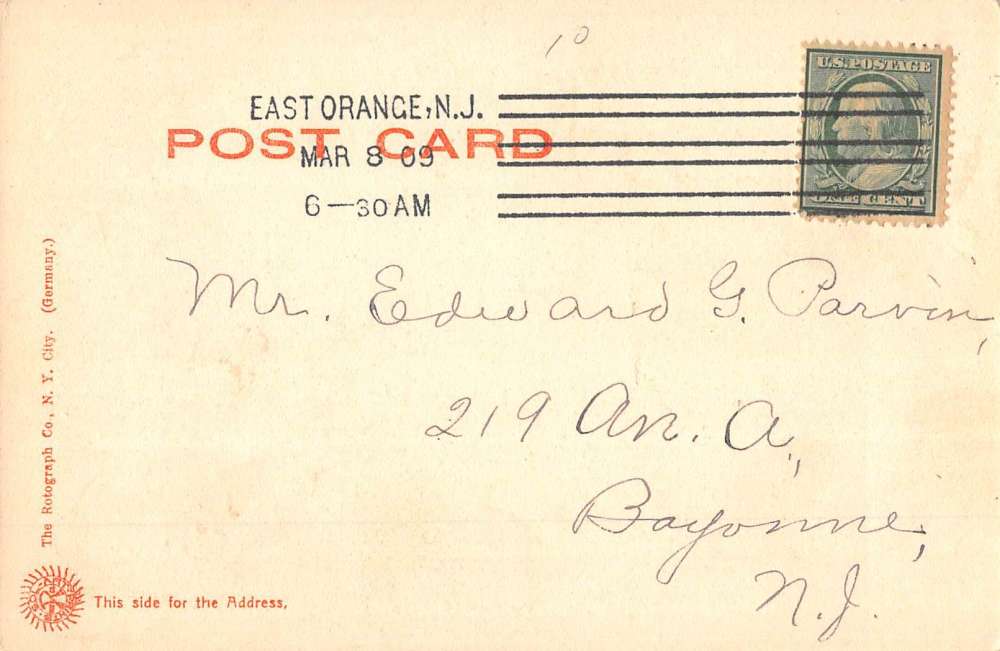 10
U.S. POSTAGE
EAST ORANGE, N.J.
POST CARD
MAR 8 09
6-30 AM
ONE CENT
Mr. Edward G. Parvin,
219 Av. A.,
Bayonne,
N.J.
The Rotograph Co., N. Y. City. (Germany.)
This side for the Address.